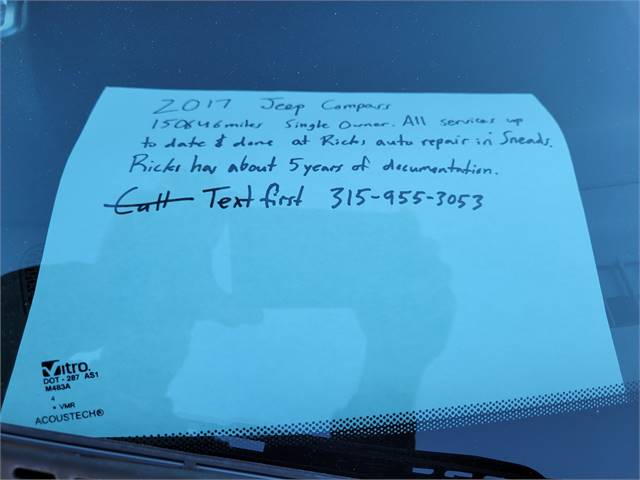 2017 Jeep Compass
150646 miles Single Owner. All services up
to date & done at Ricks auto repair in Sneads.
Ricks has about 5 years of documentation.
Call Text first 315-955-3053
Vitro.
DOT - 287 AS1
M483A
4
VMR
ACOUSTECH®